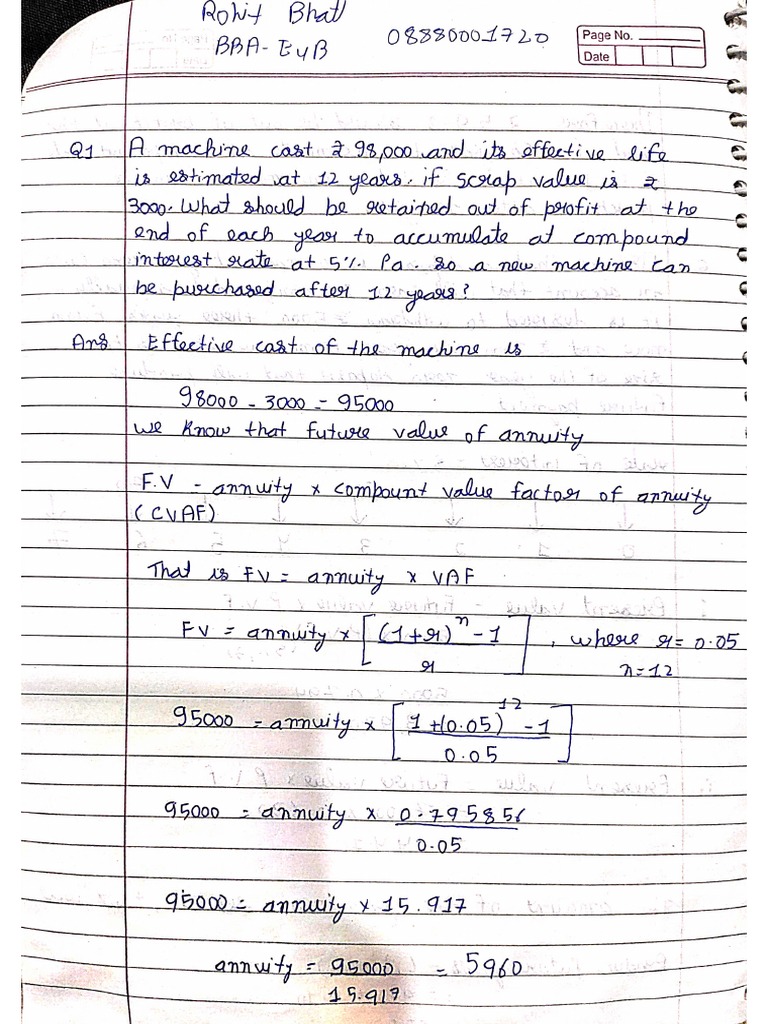 Rohit Bhatt
BBA- E4B 08880001720
Page No.
Date
Q1 A machine cost ₹ 98,000 and its effective life
is estimated at 12 years. if scrap value is ₹
3000. What should be retained out of profit at the
end of each year to accumulate at compound
interest rate at 5% Pa. so a new machine can
be purchased after 12 years?
Ans Effective cost of the machine is
98000 - 3000 = 95000
we know that future value of annuity
F.V = annuity × compount value factor of annuity
(CVAF)
That is FV = annuity × VAF
FV = annuity × [ (1+r)^n - 1 / r ] , where r = 0.05
n=12
95000 = annuity × [ 1+(0.05)^12 - 1 / 0.05 ]
95000 = annuity × 0.795856 / 0.05
95000 = annuity × 15.917
annuity = 95000 / 15.917 = 5960